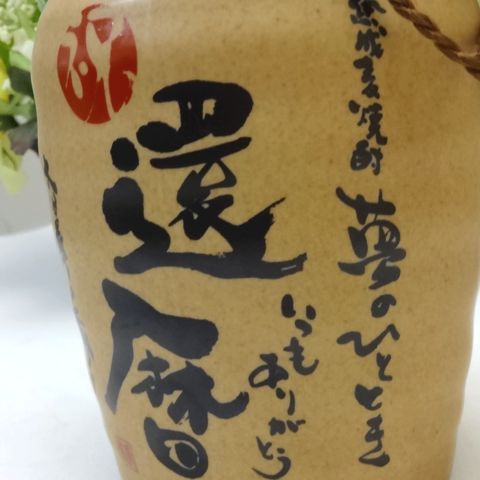 熟成麦焼酎
夢のひととき
還暦
いつも
ありがとう
祝